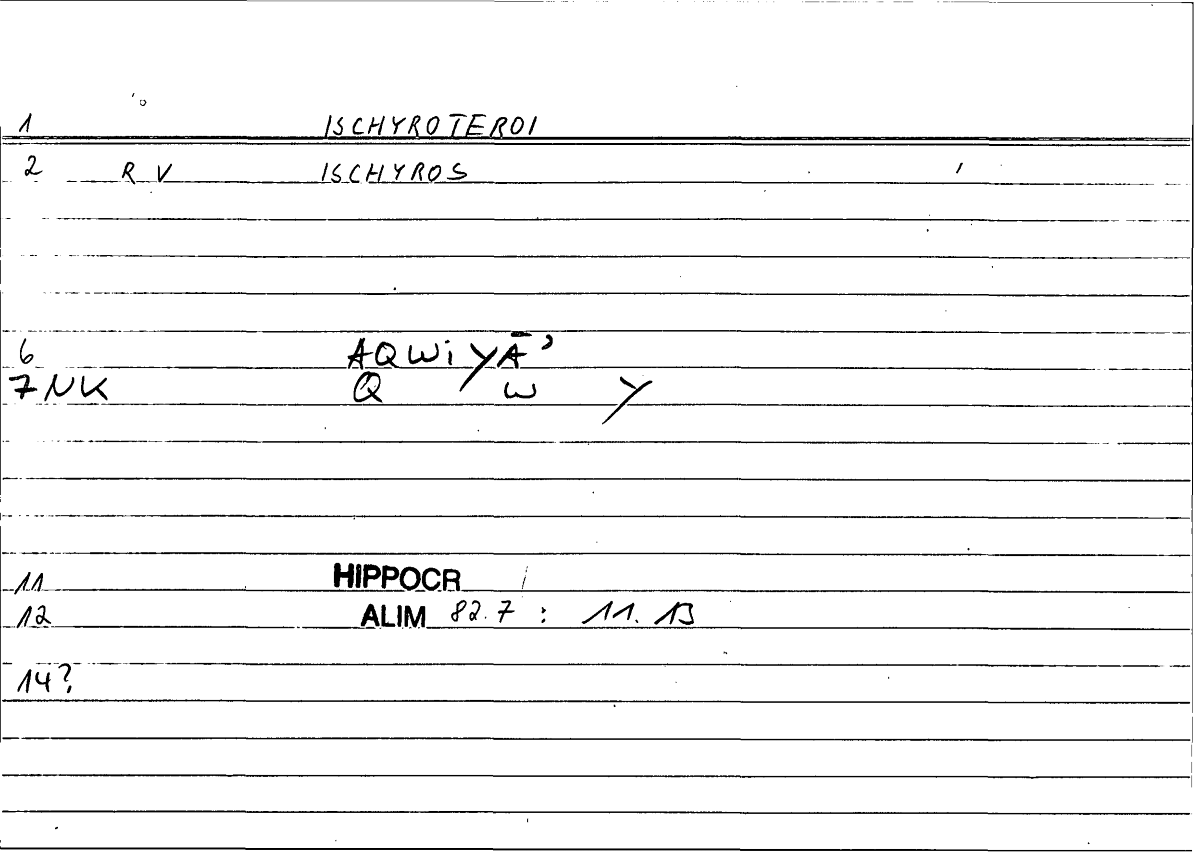 1 ISCHYROTEROI
2 R V ISCHYROS
6 AQWiYĀʾ
7 NK Q W Y
11 HIPPOCR
12 ALIM 82.7 : 11.13
14?